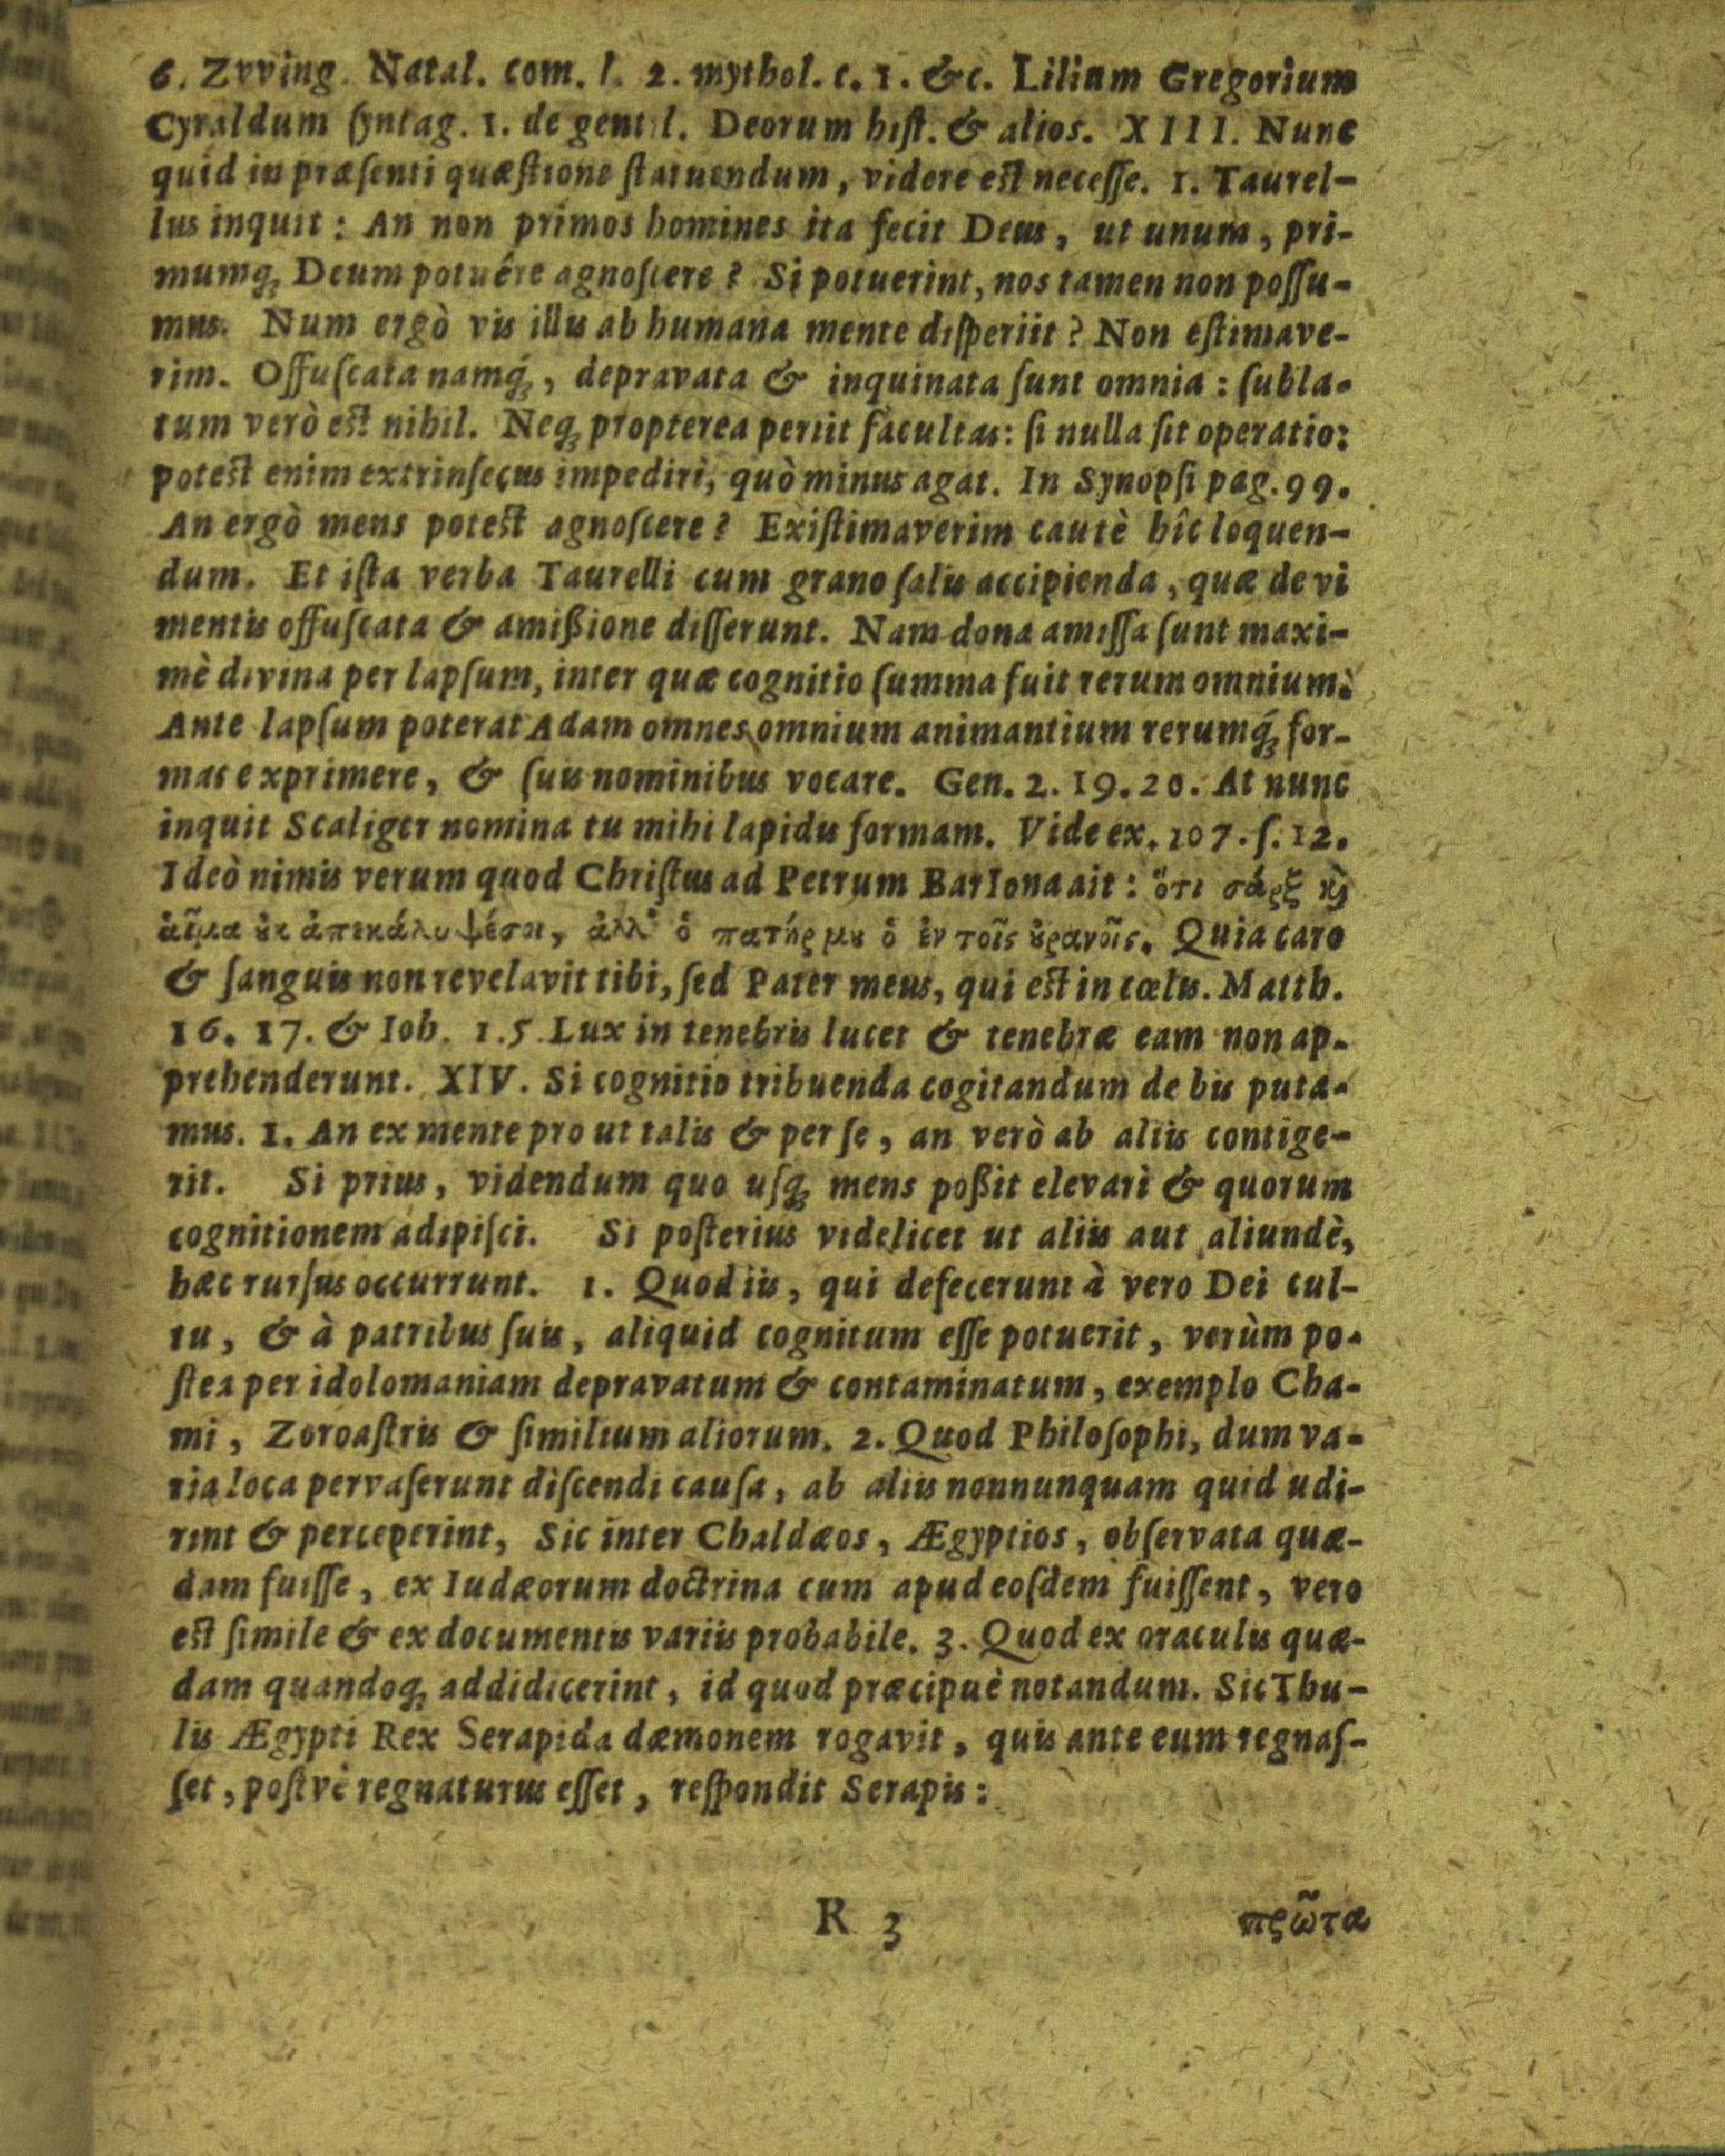 6. Zvving. Natal. com. l. 2. mythol. c. 1. &c. Lilium Gregorium
Cyraldum ſyntag. 1. de gentil. Deorum hiſt. & alios. XIII. Nunc
quid in præſenti quæſtione ſtatuendum, videre est neceſſe. 1. Taurel-
lus inquit: An non primos homines ita fecit Deus, ut unum, pri-
mumq; Deum potuêre agnoſcere? Si potuerint, nos tamen non poſſu-
mus. Num ergò vis illis ab humana mente diſperiit? Non eſtimave-
rim. Offuſcata namq́;, depravata & inquinata ſunt omnia: ſubla-
tum verò est nihil. Neq; propterea periit facultas: ſi nulla ſit operatio:
potest enim extrinſecus impediri, quò minus agat. In Synopſi pag. 99.
An ergò mens potest agnoſcere? Exiſtimaverim cautè hîc loquen-
dum. Et iſta verba Taurelli cum grano ſalis accipienda, quæ de vi
mentis offuſcata & amißione diſſerunt. Nam dona amiſſa ſunt maxi-
mè divina per lapſum, inter quæ cognitio ſumma fuit rerum omnium.
Ante lapſum poterat Adam omnes omnium animantium rerumq́; for-
mas exprimere, & ſuis nominibus vocare. Gen. 2. 19. 20. At nunc
inquit Scaliger nomina tu mihi lapidis formam. Vide ex. 107. ſ. 12.
Ideò nimis verum quod Chriſtus ad Petrum BarIona ait: ὅτι σάρξ ϗ̀
ἁῖμα ȣκ ἀπεκάλυψέσοι, ἀλλ' ὁ πατήρ μȣ ὁ ἐν τοῖς ȣρανοῖς. Quia caro
& ſanguis non revelavit tibi, ſed Pater meus, qui est in cœlis. Matth.
16. 17. & Ioh. 1. 5. Lux in tenebris lucet & tenebræ eam non ap-
prehenderunt. XIV. Si cognitio tribuenda cogitandum de his puta-
mus. 1. An ex mente pro ut talis & per ſe, an verò ab aliis contige-
rit. Si prius, videndum quo uſq; mens poßit elevari & quorum
cognitionem adipiſci. Si poſterius videlicet ut aliis aut aliundè,
hæc rurſus occurrunt. 1. Quod iis, qui defecerunt à vero Dei cul-
tu, & à patribus ſuis, aliquid cognitum eſſe potuerit, verùm po-
ſtea per idolomaniam depravatum & contaminatum, exemplo Cha-
mi, Zoroaſtris & ſimilium aliorum. 2. Quod Philoſophi, dum va-
ria loca pervaſerunt diſcendi cauſa, ab aliis nonnunquam quid udi-
rint & perceperint, Sic inter Chaldæos, Ægyptios, obſervata quæ-
dam fuiſſe, ex Iudæorum doctrina cum apud eoſdem fuiſſent, vero
est ſimile & ex documentis variis probabile. 3. Quod ex oraculis quæ-
dam quandoq; addidicerint, id quod præcipuè notandum. Sic Thu-
lis Ægypti Rex Serapida dæmonem rogavit, quis ante eum regnaſ-
ſet, poſtvè regnaturus eſſet, reſpondit Serapis:
R 3
πρῶτα